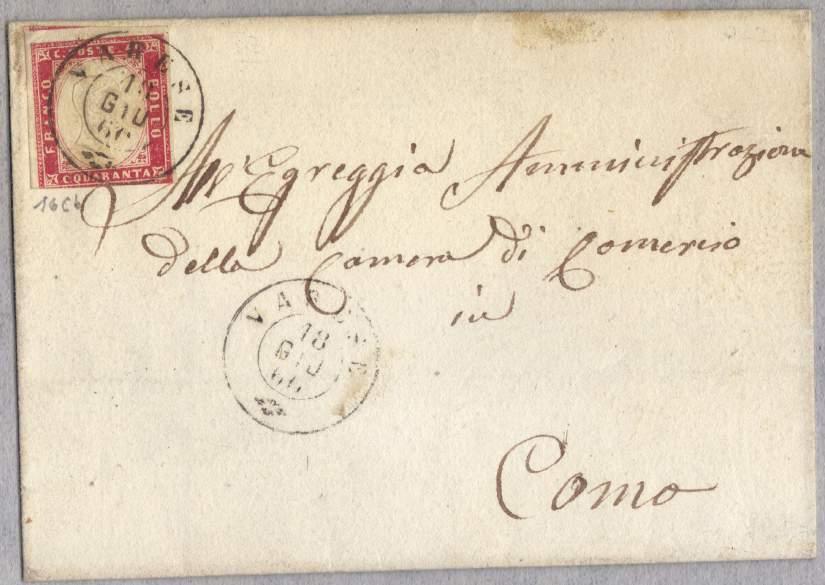 C. POSTE
FRANCO
BOLLO
C QUARANTA
VARESE
18
GIU
60
16Cb
All'Egreggia Amministrazione
della Camera di Comercio
in
VARESE
18
GIU
60
Como